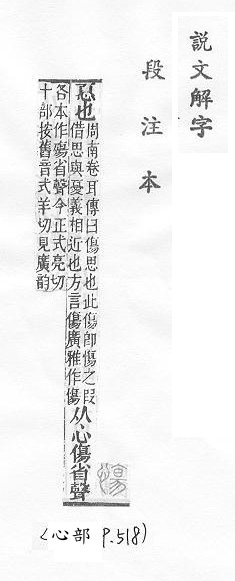 說文解字
段注本
𢝊也
周南卷耳傳曰傷思也此傷卽慯之叚
借思與憂義相近也方言傷廣雅作慯
从心傷省聲
各本作殤省聲今正式亮切
十部按舊音式羊切見廣韵
(心部 P.518)